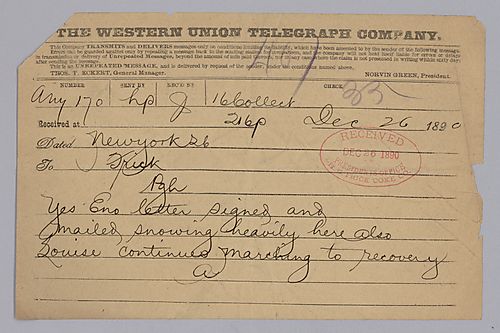 THE WESTERN UNION TELEGRAPH COMPANY.
This Company TRANSMITS and DELIVERS messages only on conditions limiting its liability, which have been assented to by the sender of the following message.
Errors can be guarded against only by repeating a message back to the sending station for comparison, and the company will not hold itself liable for errors or delays
in transmission or delivery of Unrepeated Messages, beyond the amount of tolls paid thereon, nor in any case where the claim is not presented in writing within sixty days
after sending the message.
This is an UNREPEATED MESSAGE, and is delivered by request of the sender, under the conditions named above.
THOS. T. ECKERT, General Manager. NORVIN GREEN, President.
NUMBER SENT BY REC'D BY CHECK
170 hp J 16 Collect 33
Received at 216p Dec 26 1890
Dated Newyork 26
To Frick
Pgh
RECEIVED
DEC 26 1890
PRESIDENT'S OFFICE
H. C. FRICK COKE CO.
Yes Eno letter signed and
mailed snowing heavily here also
Louise continues marching to recovery
A